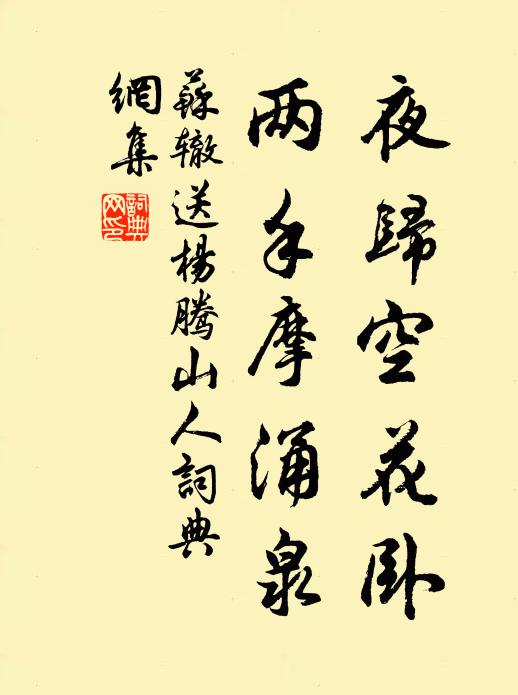 夜歸空花卧
两手摩涌泉
蘇辙送楊騰山人詞典
網集
詞典网印